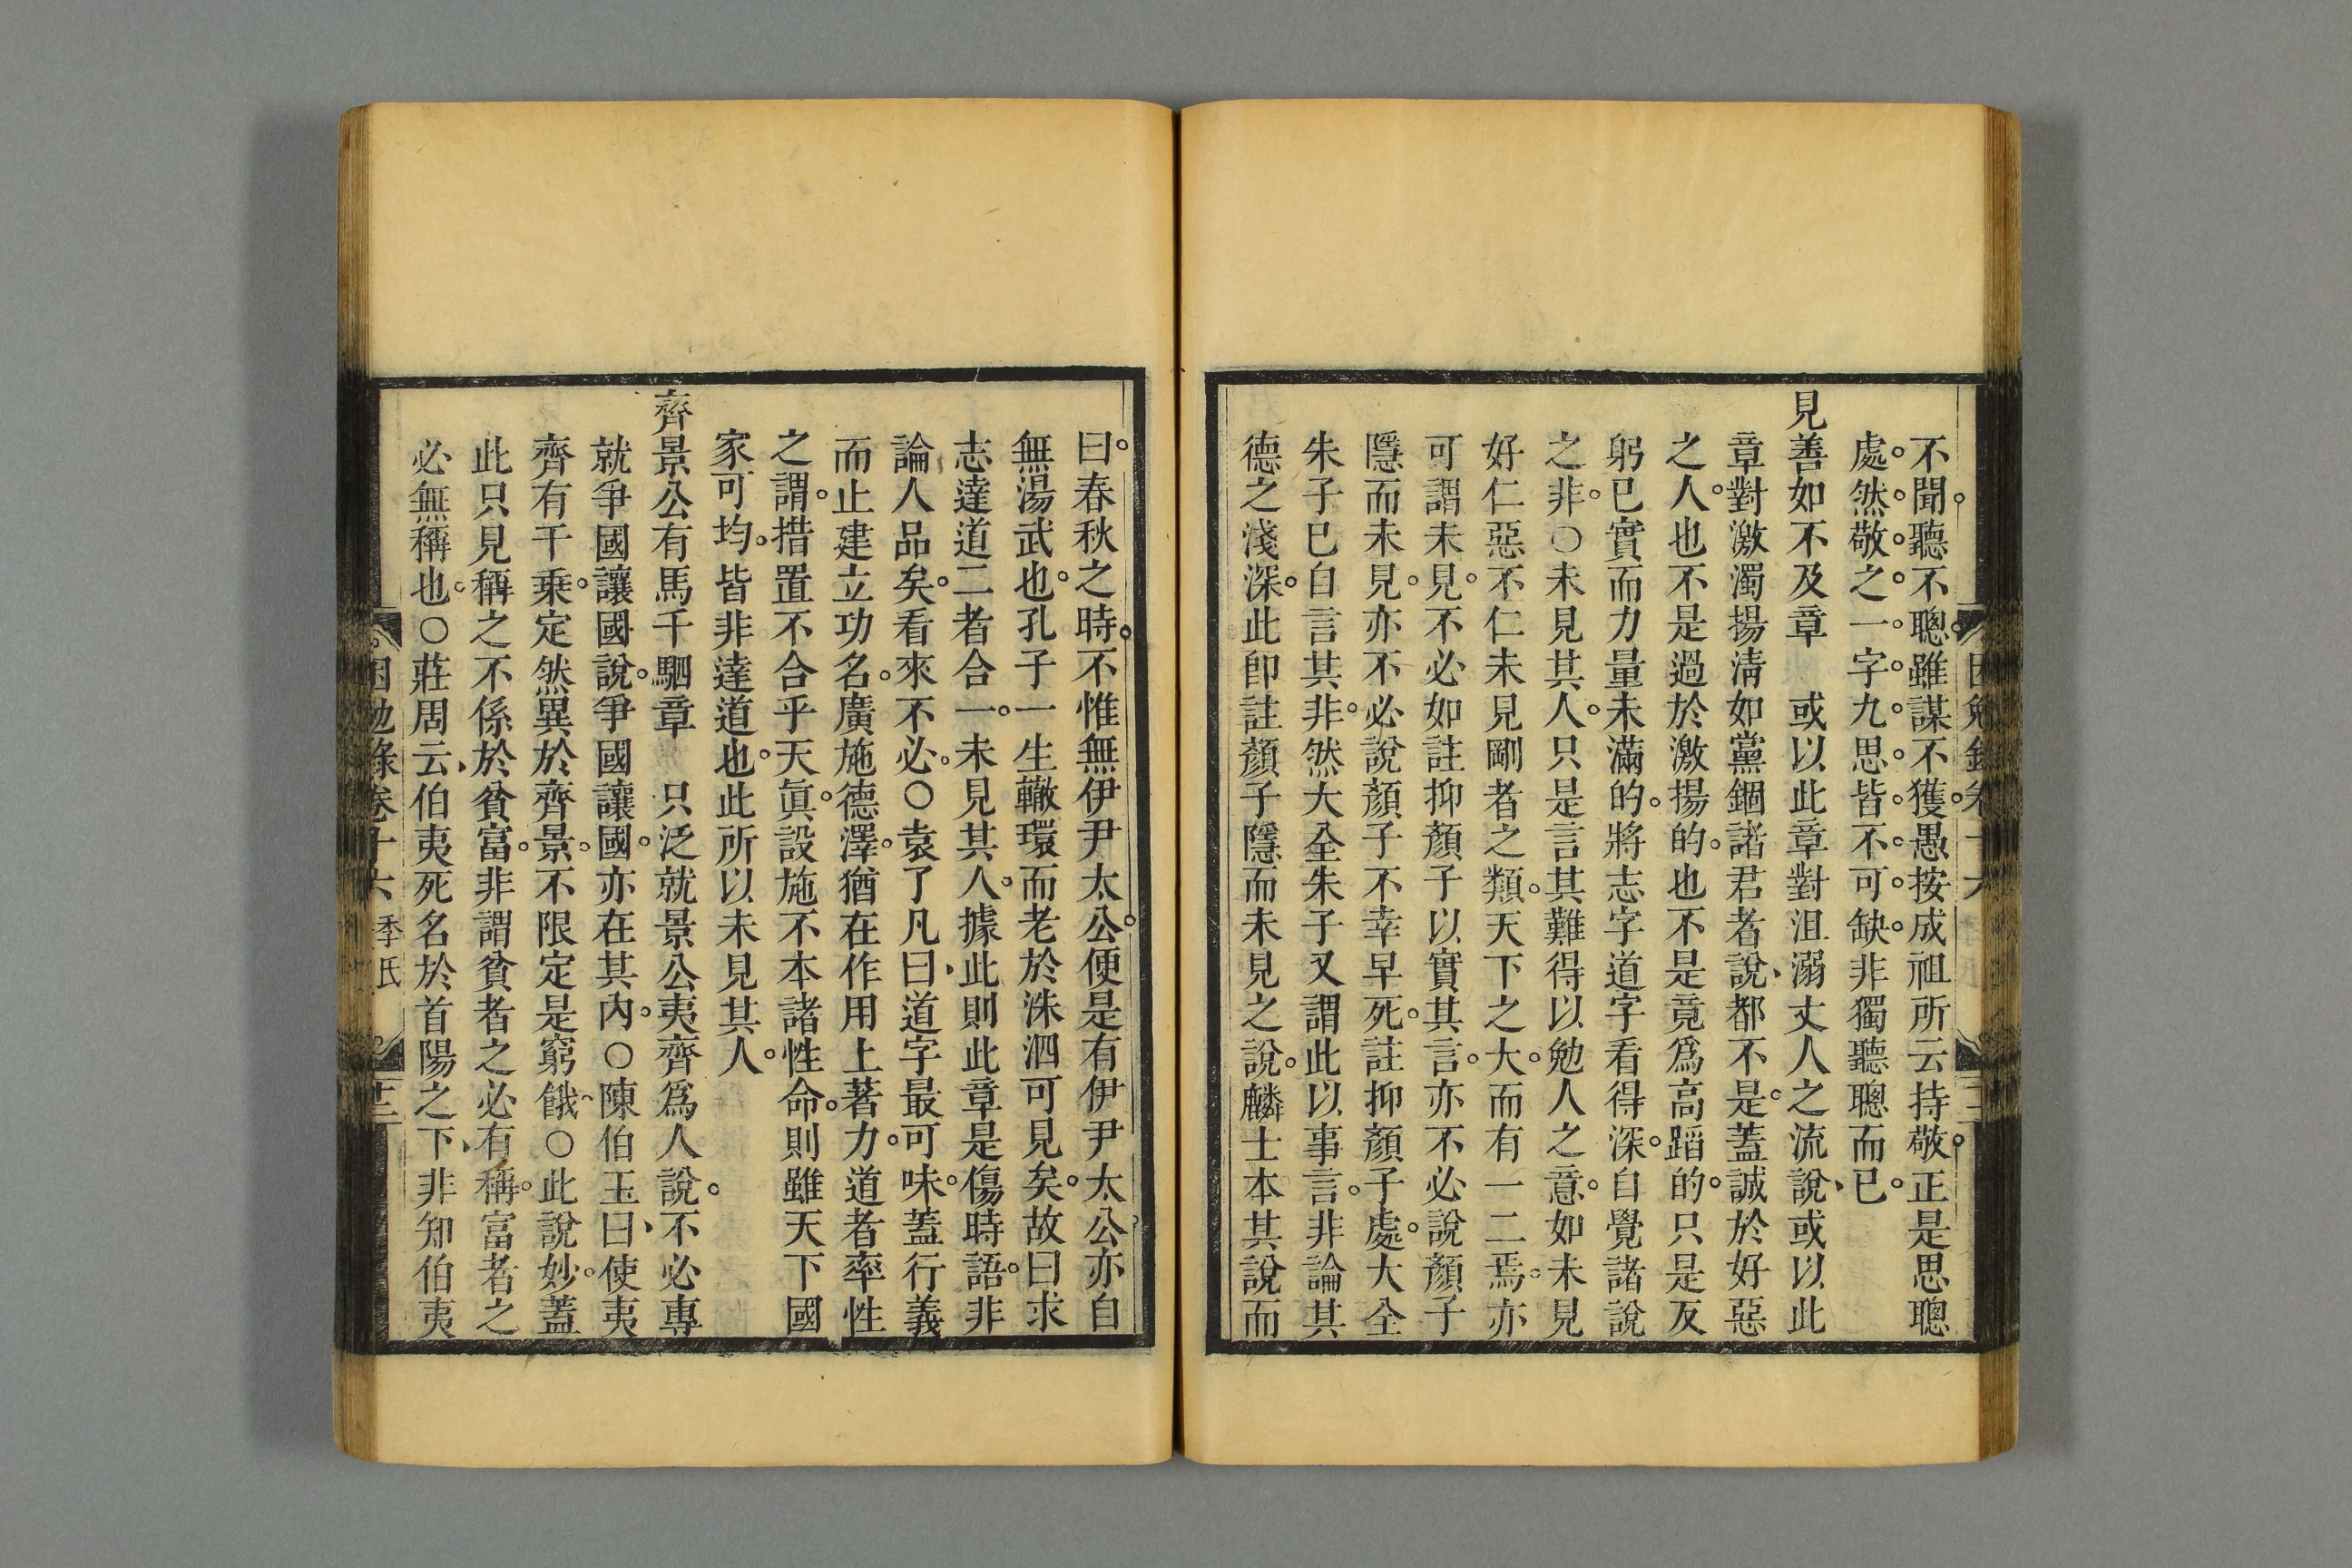 不聞聽不聰。雖謀不獲。愚按成祖所云持敬。正是思聰
處。然敬之一字九思皆不可缺。非獨聽聰而已。
見善如不及章　或以此章對沮溺丈人之流說、或以此
章對激濁揚清如黨錮諸君者說、都不是。蓋誠於好惡
之人。也不是過於激揚的。也不是竟爲高蹈的。只是反
躬已實而力量未滿的。將志字道字看得深。自覺諸說
之非。○未見其人。只是言其難得以勉人之意。如未見
好仁惡不仁未見剛者之類。天下之大。而有一二焉。亦
可謂未見。不必如註抑顏子以實其言。亦不必說顏子
隱而未見。亦不必說顏子不幸早死。註抑顏子處。大全
朱子已自言其非。然大全朱子又謂此以事言。非論其
德之淺深。此卽註顏子隱而未見之說。麟士本其說而
曰。春秋之時。不惟無伊尹太公。便是有伊尹太公。亦自
無湯武也。孔子一生轍環而老於洙泗可見矣。故曰求
志達道二者合一。未見其人。據此則此章是傷時語。非
論人品矣。看來不必。○袁了凡曰、道字最可味。蓋行義
而止建立功名。廣施德澤。猶在作用上著力。道者率性
之謂。措置不合乎天眞。設施不本諸性命。則雖天下國
家可均。皆非達道也。此所以未見其人。
齊景公有馬千駟章　只泛就景公夷齊爲人說。不必專
就爭國讓國說。爭國讓國。亦在其內。○陳伯玉曰、使夷
齊有千乘。定然異於齊景。不限定是窮餓。○此說妙。蓋
此只見稱之不係於貧富。非謂貧者之必有稱。富者之
必無稱也。○莊周云、伯夷死名於首陽之下、非知伯夷
困勉錄卷十六　季氏